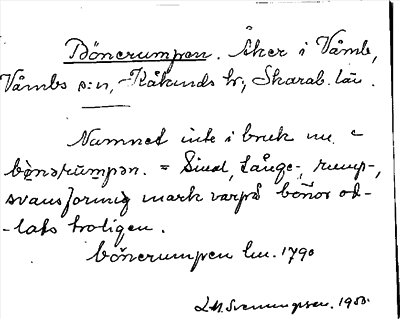 Bönerumpen. Åker i Våmb,
Våmbs s:n, Kåkinds hr, Skarab. län.
Namnet inte i bruk nu. =
bö̀nərùmpən. = Smal, långe-, rump-,
svansformig mark varpå bönor od-
-lats troligen.
bönerumpen lm. 1790
L.M. Svenungsson. 1950.